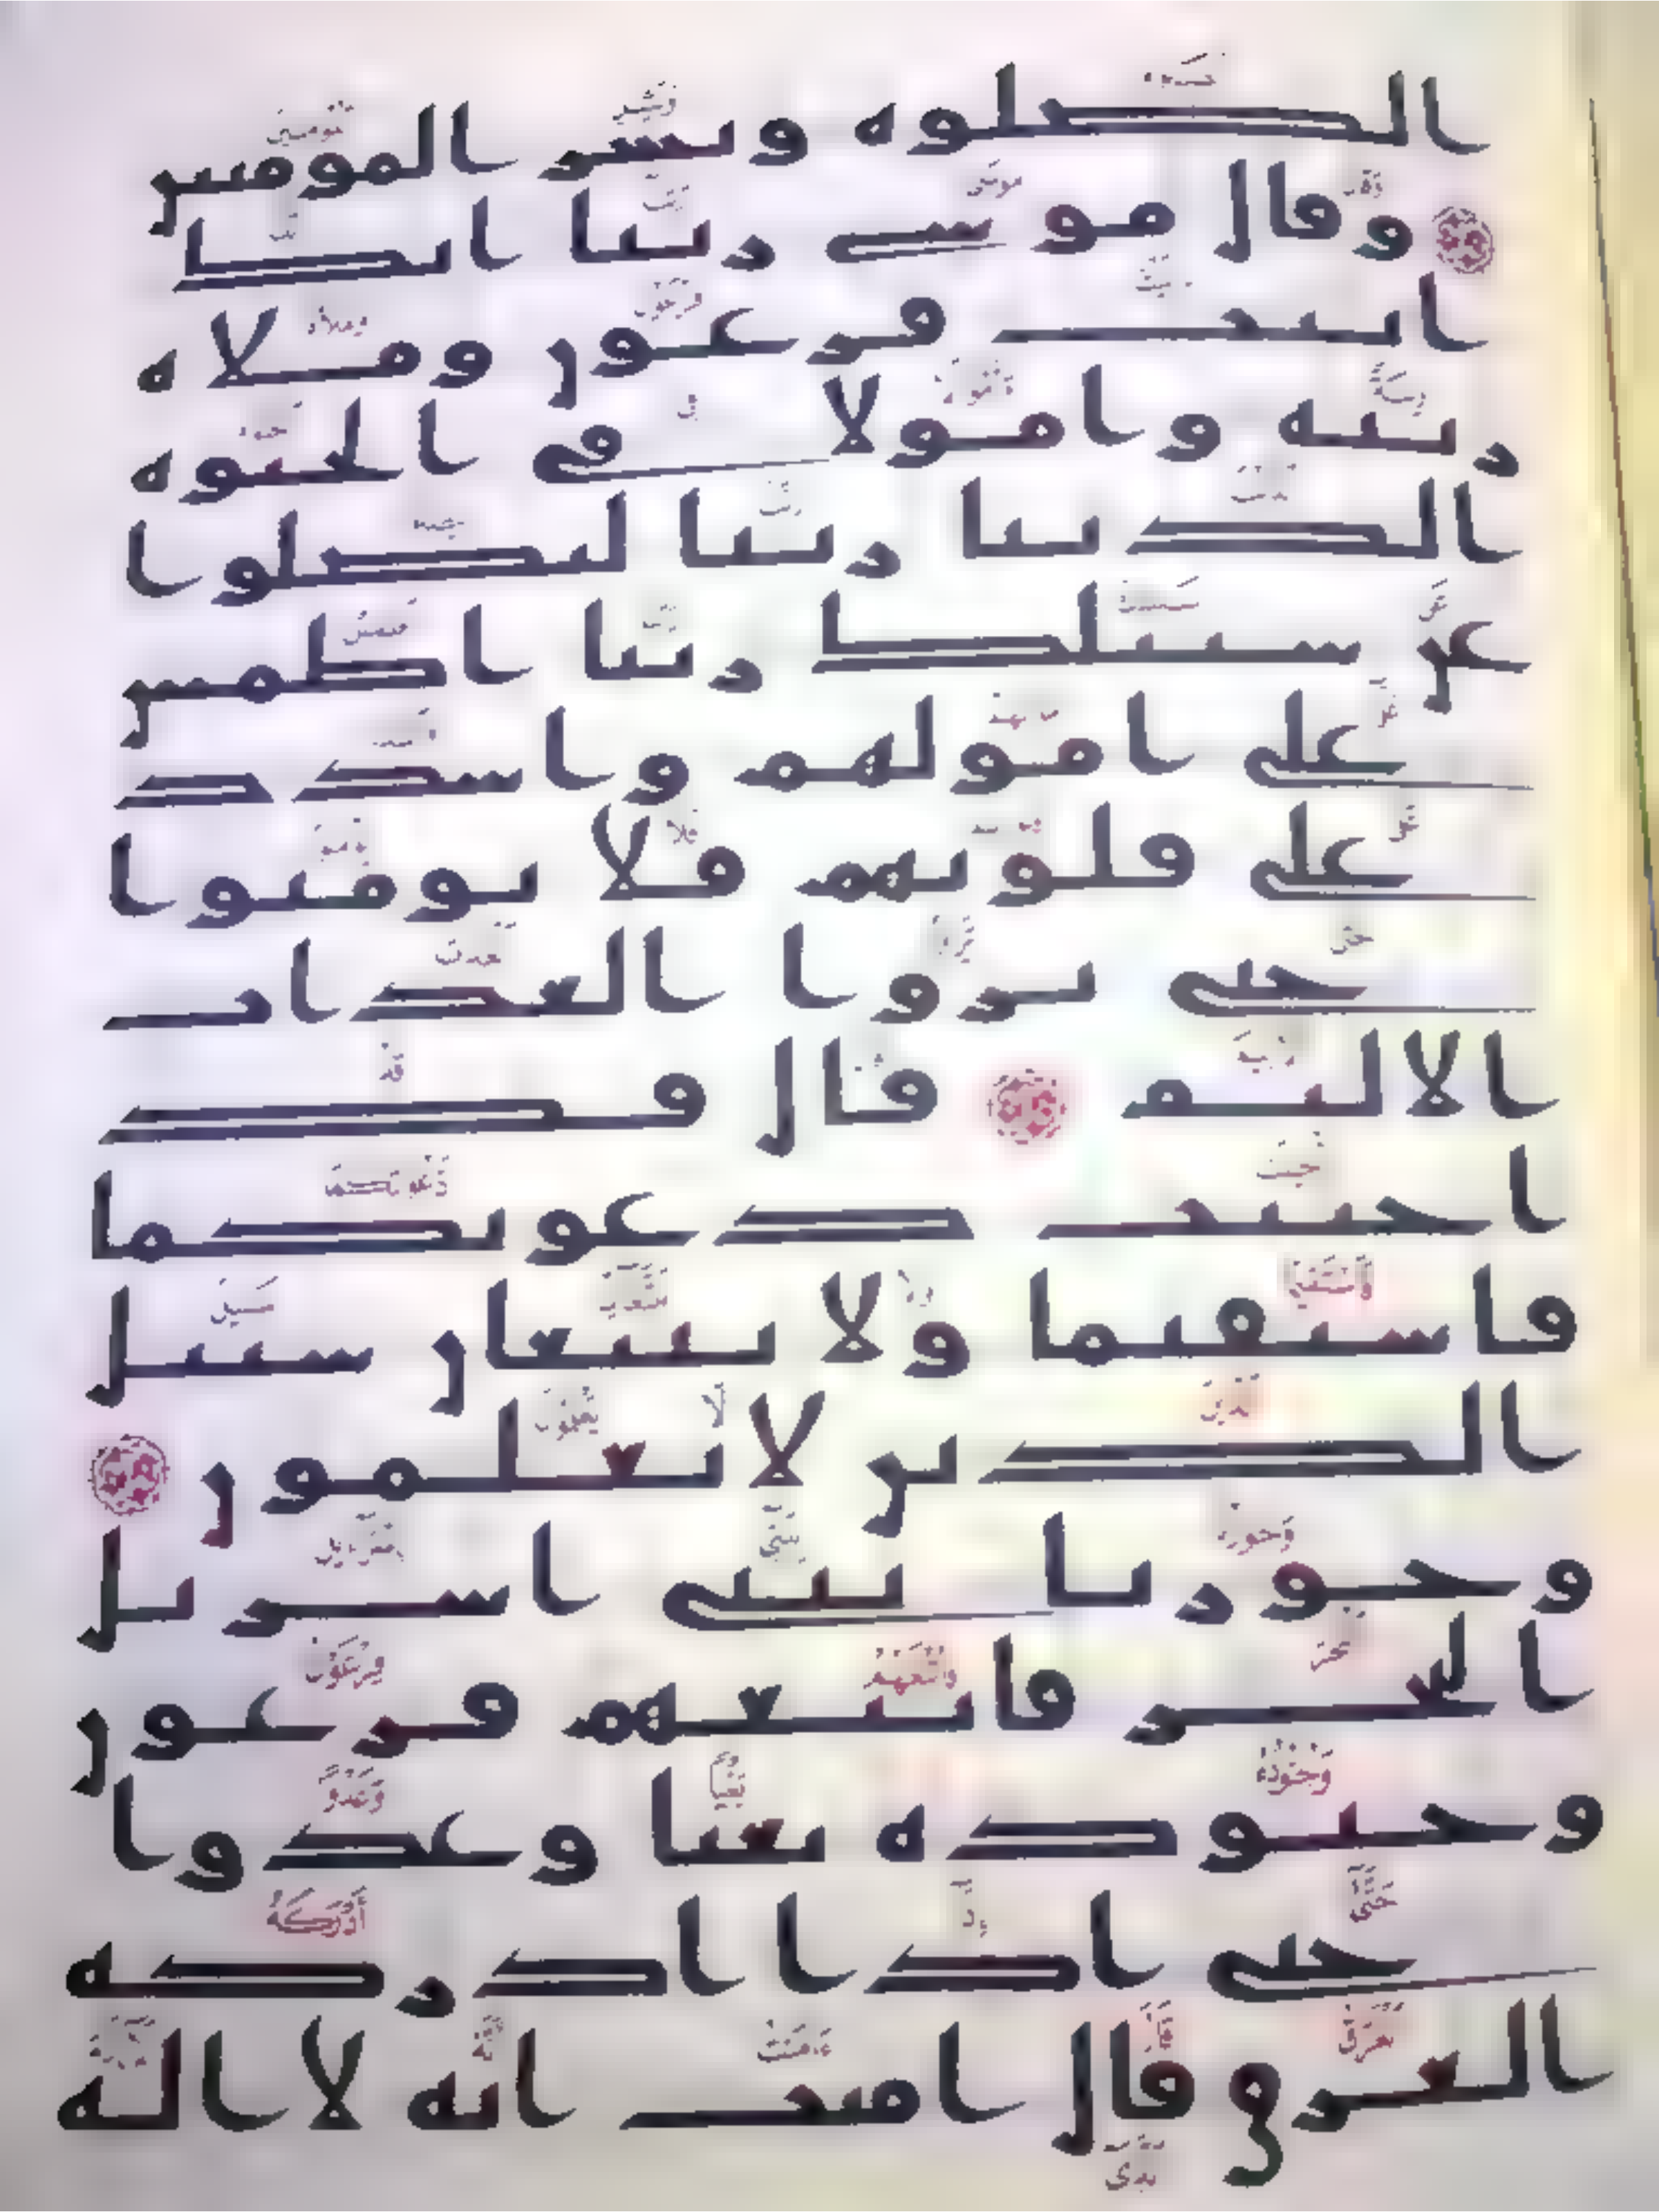 الصلوه وبشر المومنين
وقال موسى ربنا انك
اتيت فرعون وملاه
زينه وامولا في الحيوه
الدنيا ربنا ليضلوا
عن سبيلك ربنا اطمس
على امولهم واشدد
على قلوبهم فلا يومنوا
حتى يروا العذاب
الاليم قال قد
اجيبت دعوتكما
فاستقيما ولا تتبعان سبيل
الذين لا يعلمون
وجوزنا ببني اسريل
البحر فاتبعهم فرعون
وجنوده بغيا وعدوا
حتى اذا ادركه
الغرق قال امنت انه لا اله